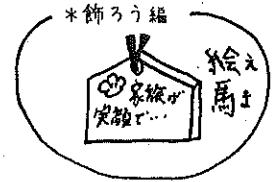 *飾ろう編
家族が
笑顔で…
絵え
馬ま